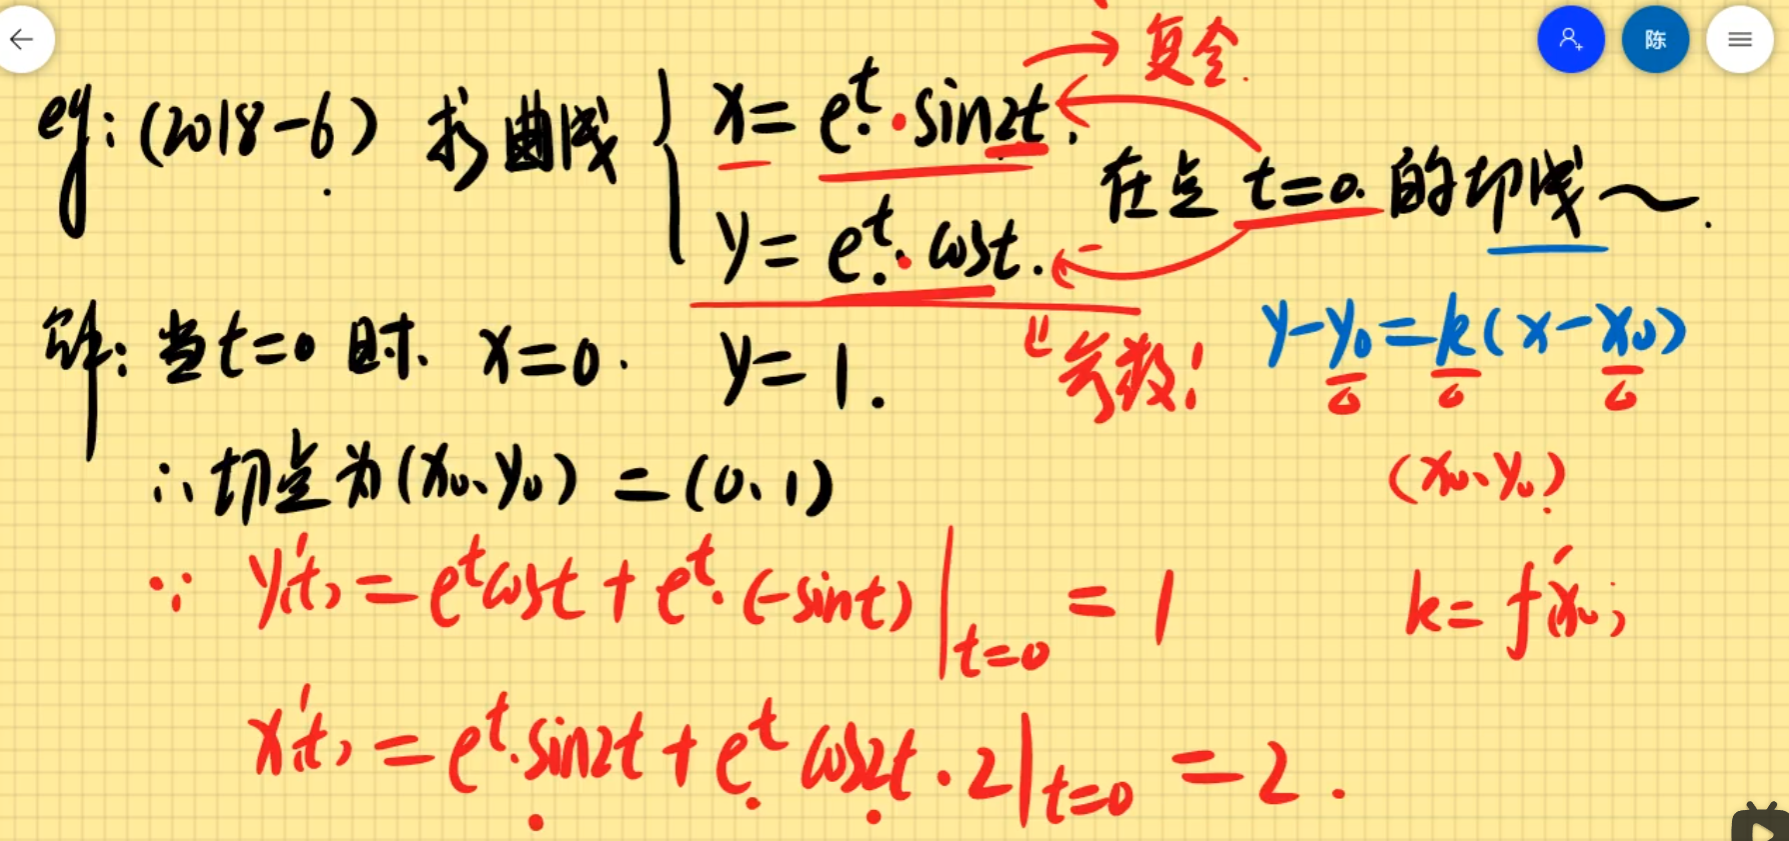 陈
复合.
eg: (2018-6) 求曲线 { x = e^t · sin2t. y = e^t · cost. 在点 t=0. 的切线~.
解: 当t=0时. x=0. y=1.
参数!
y-y₀=k(x-x₀)
∴ 切点为(x₀、y₀) = (0、1)
(x₀、y₀)
∵ y'(t) = e^t cost + e^t · (-sint) |t=0 = 1
k = f'(x₀)
x'(t) = e^t · sin2t + e^t cos2t · 2 |t=0 = 2.